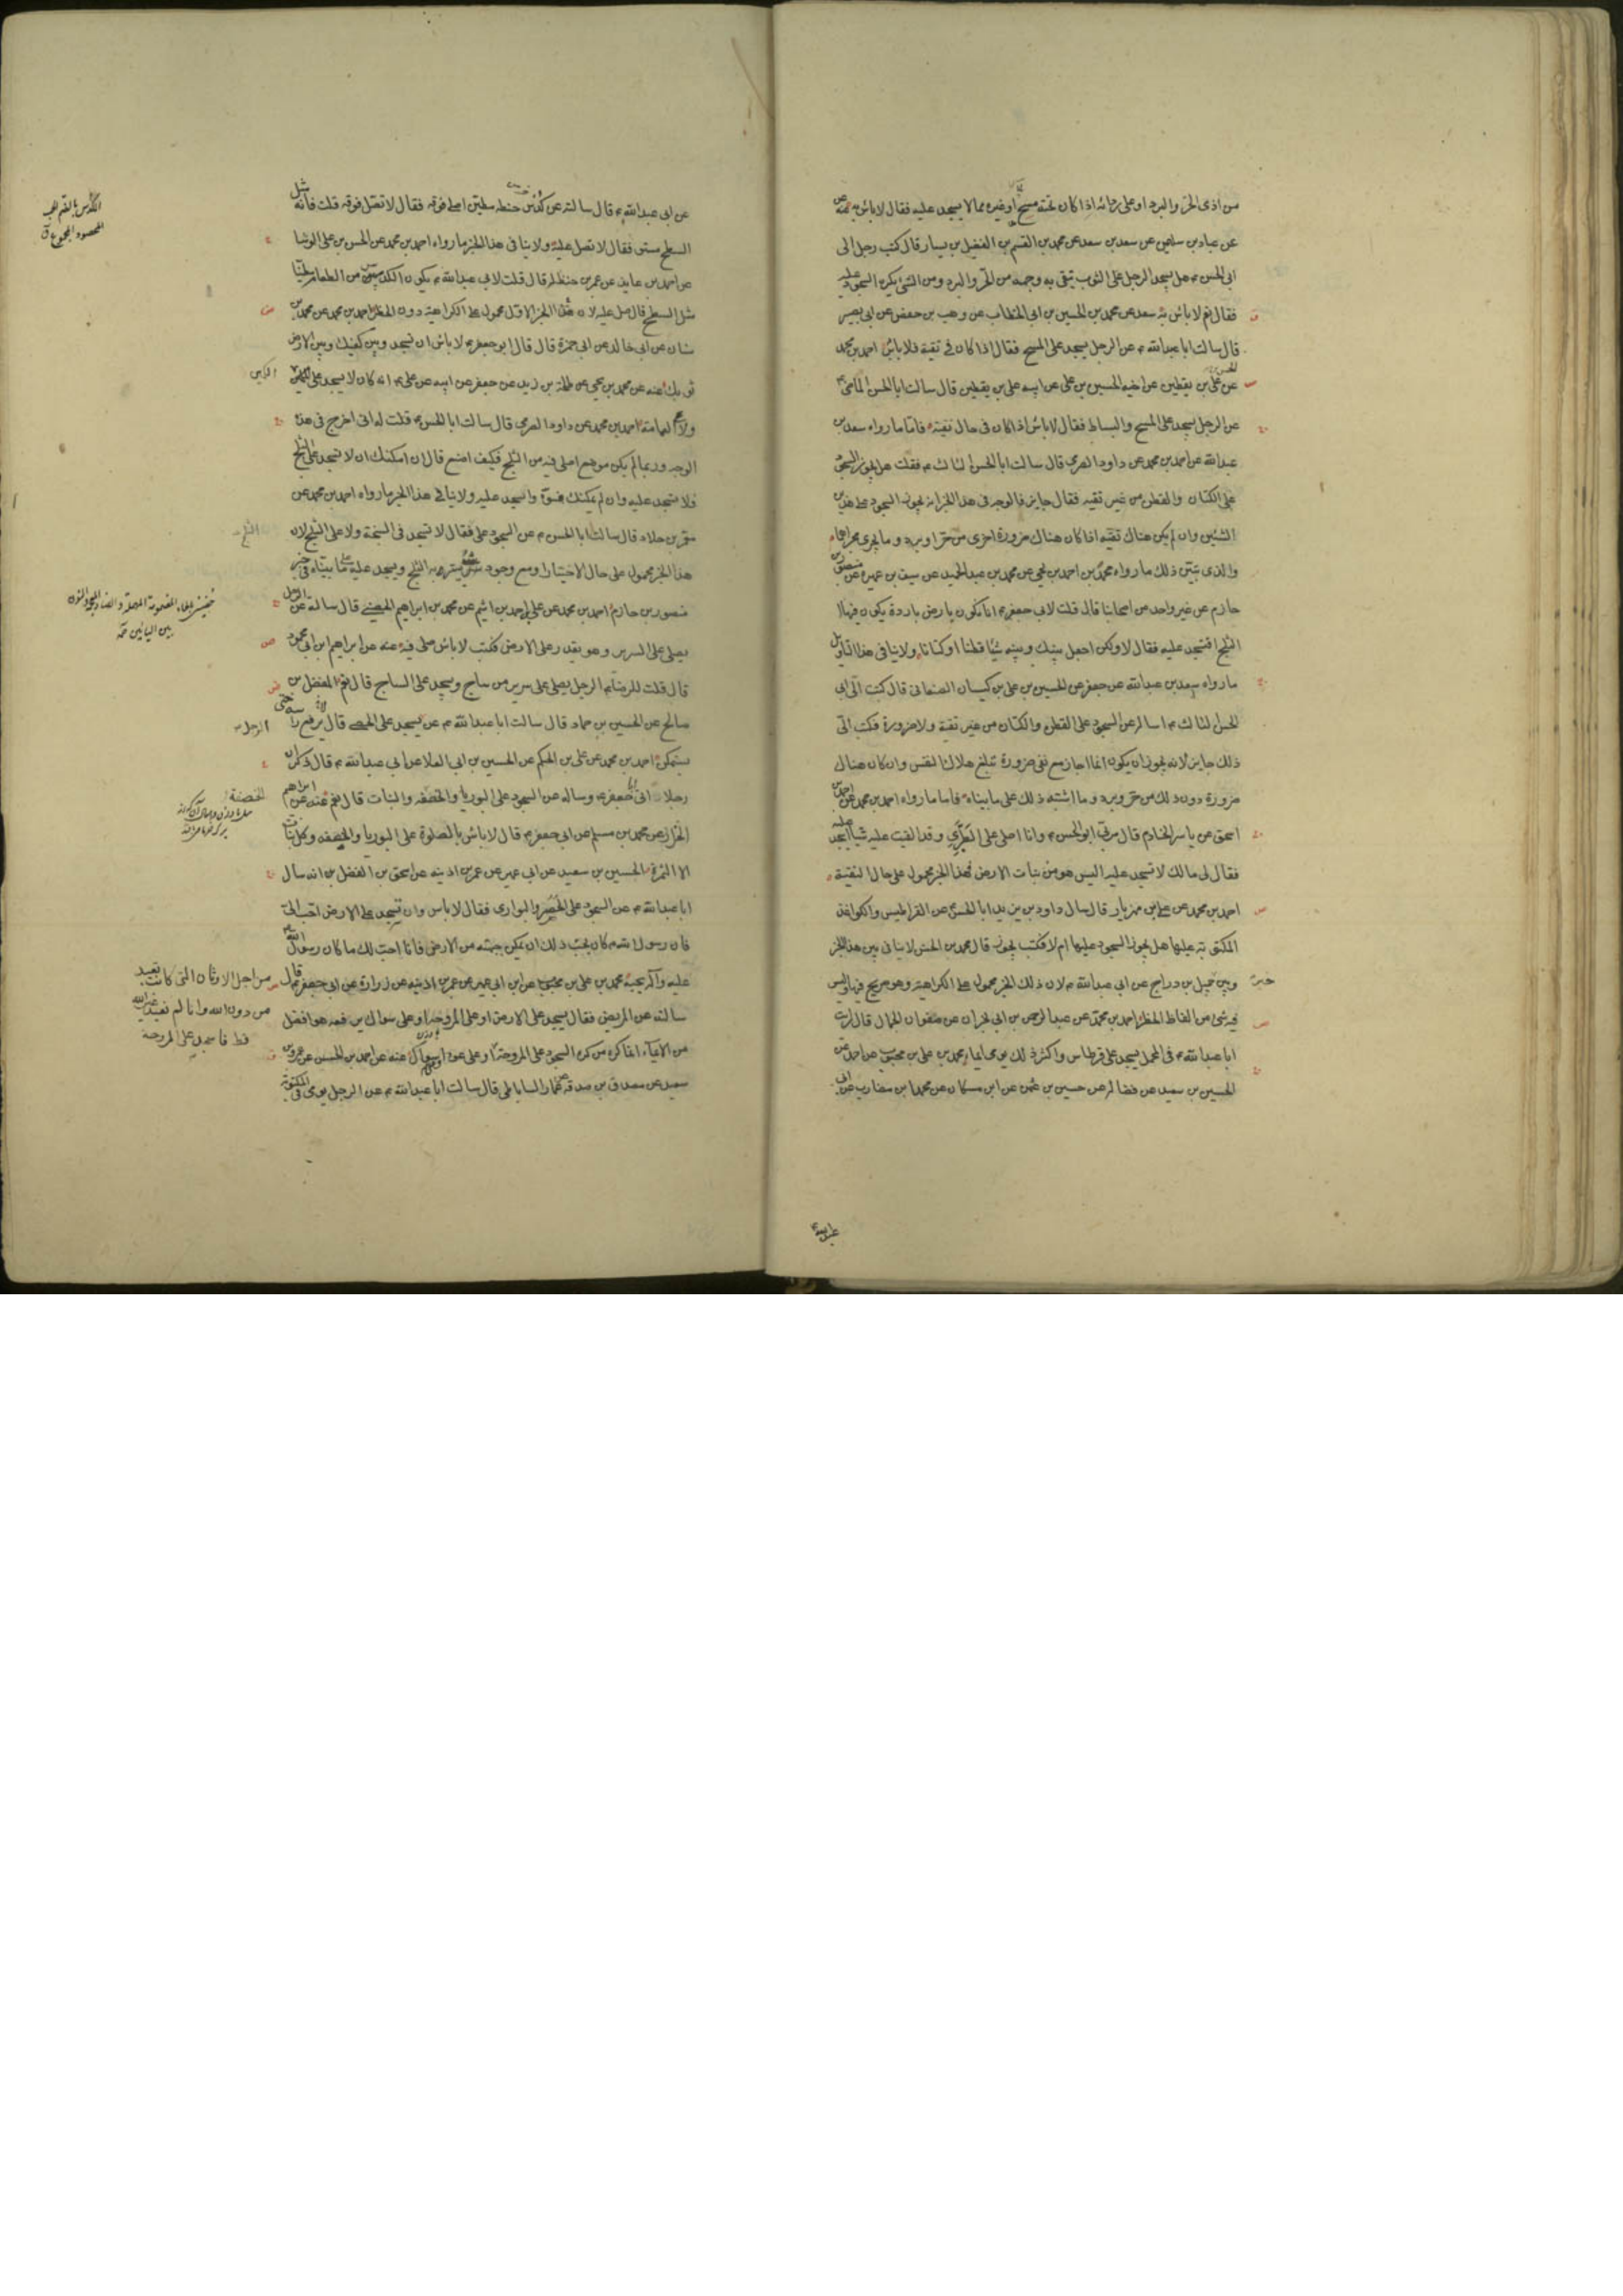 من اذى الحر والبرد او على ردائه اذا كان تحته مسح او غيره مما لا يسجد عليه فقال لا باس به عنه عن
عن عباد بن سليمن عن سعد بن سعد عن محمد بن القسم بن الفضيل بن يسار قال كتب رجل الى
ابى الحسن ع هل يسجد الرجل على الثوب يتقى به وجهه من الحر والبرد ومن الشئ يكره السجود عليه
فقال نعم لا باس به سعد عن محمد بن الحسين بن ابى الخطاب عن وهب بن حفص عن ابى بصير
قال سالت ابا عبد الله ع عن الرجل يسجد على المسح فقال اذا كان فى تقية فلا باس احمد بن محمد
عن الحسن بن على بن يقطين عن اخيه الحسين بن على عن ابيه على بن يقطين قال سالت ابا الحسن الماضى ع
عن الرجل يسجد على المسح والبساط فقال لا باس اذا كان فى حال تقية فاما ما رواه سعد بن
عبد الله عن احمد بن محمد عن داود الصرمى قال سالت ابا الحسن الثالث ع فقلت هل يجوز السجود
على الكتان والقطن من غير تقيه فقال جايز فالوجه فى هذا الخبر انه يجوز السجود على هذين
الشيئين وان لم يكن هناك تقيه اذا كان هناك ضرورة اخرى من حر او برد وما يجرى مجراهما
والذى يبين ذلك ما رواه محمد بن احمد بن يحيى عن محمد بن عبد الحميد عن سيف بن عميرة عن منصور بن
حازم عن غير واحد من اصحابنا قال قلت لابى جعفر ع انا نكون بارض باردة يكون فيها
الثلج افنسجد عليه فقال لا ولكن اجعل بينك وبينه شيئا قطنا او كتانا ولا ينافى هذا التاويل
ما رواه سعد بن عبد الله عن جعفر عن الحسين بن على بن كيسان الصنعانى قال كتبت الى ابى
الحسن الثالث ع اساله عن السجود على القطن والكتان من غير تقية ولا ضرورة فكتب الى
ذلك جايز لانه يجوز ان يكون انما اجاز مع نفى ضرورة تبلغ هلاك النفس وان كان هناك
ضرورة دون ذلك من حر وبرد وما اشبه ذلك على ما بيناه فاما ما رواه احمد بن محمد عن احمد بن
اسحق عن ياسر الخادم قال مر بى ابو الحسن ع وانا اصلى على الطبرى وقد القيت عليه شيئا اسجد عليه
فقال لى ما لك لا تسجد عليه اليس هو من نبات الارض فهذا الخبر محمول على حال التقية
احمد بن محمد عن على بن مهزيار قال سال داود بن يزيد ابا الحسن ع عن القراطيس والكواغذ
المكتوبة عليها هل يجوز السجود عليها ام لا فكتب يجوز قال محمد بن الحسن لا ينافى بين هذا الخبر
وبين خبر جميل بن دراج عن ابى عبد الله ع لان ذلك الخبر محمول على الكراهية وهو صريح فيها وليس
فيه شئ من الفاظ الحظر احمد بن محمد عن عبد الرحمن بن ابى نجران عن صفوان الجمال قال رايت
ابا عبد الله ع فى المحمل يسجد على قرطاس واكثر ذلك يومى ايماء محمد بن على بن محبوب عن احمد عن
الحسين بن سعيد عن فضالة عن حسين بن عثمن عن ابن مسكان عن محمد بن مضارب عن ابى
عبد الله ع
عن ابى عبد الله ع قال سالته عن كدس حنطه مطين اصلى فوقه فقال لا تصل فوقه قلت فانه مثل
السطح مستو فقال لا تصل عليه ولا ينافى هذا الخبر ما رواه احمد بن محمد عن الحسن بن على الوشا
عن احمد بن عايذ عن عمر بن حنظله قال قلت لابى عبد الله ع يكون الكدس من الطعام مطينا
مثل السطح قال صل عليه لان هذا الخبر الاول محمول على الكراهية دون الحظر احمد بن محمد عن محمد بن
سنان عن ابى خالد عن ابى حمزة قال قال ابو جعفر ع لا باس ان تسجد وبين كفيك وبين الارض
ثوبك عنه عن محمد بن يحيى عن طلحة بن زيد عن جعفر عن ابيه عن على ع انه كان لا يسجد على الكمين
ولا على العمامة احمد بن محمد عن داود الصرمى قال سالت ابا الحسن ع قلت له انى اخرج فى هذا
الوجه وربما لم يكن موضع اصلى فيه من الثلج فكيف اصنع قال ان امكنك ان لا تسجد على الثلج
فلا تسجد عليه وان لم يمكنك فسوه واسجد عليه ولا ينافى هذا الخبر ما رواه احمد بن محمد عن
معمر بن خلاد قال سالت ابا الحسن ع عن السجود على الثلج فقال لا تسجد فى السبخة ولا على الثلج لان
هذا الخبر محمول على حال الاختيار او مع وجود شئ يستره به الثلج ويسجد عليه على ما بيناه فى خبر
منصور بن حازم احمد بن محمد عن على بن احمد بن اشيم عن محمد بن ابراهيم الحضينى قال سالته عن الرجل
يصلى على السرير وهو يقدر على الارض فكتب لا باس صلى فيه عنه عن ابراهيم بن ابى محمود
قال قلت للرضا ع الرجل يصلى على سرير من ساج ويسجد على الساج قال نعم المفضل بن
صالح عن الحسين بن حماد قال سالت ابا عبد الله ع عن الرجل يسجد على الحصى قال يرفع راسه حتى
يستمكن احمد بن محمد عن على بن الحكم عن الحسين بن ابى العلا عن ابى عبد الله ع قال ذكر ان
رجلا اتى ابا جعفر ع وساله عن السجود على البوريا والخصفه والنبات قال نعم عنه عن ابراهيم
الخزاز عن محمد بن مسلم عن ابى جعفر ع قال لا باس بالصلوة على البوريا والخصفه وكل نبات
الا الثمرة الحسين بن سعيد عن ابى عمير عن عمر بن اذينه عن اسحق بن الفضل بن انه سال
ابا عبد الله ع عن السجود على الحصر والبوارى فقال لا باس وان تسجد على الارض احب الى
فان رسول الله ص كان يحب ذلك ان يمكن جبهته من الارض فانا احب لك ما كان رسول الله صلى الله
عليه وآله يحبه محمد بن على بن محبوب عن ابن ابى عمير عن عمر بن اذينه عن زرارة عن ابى جعفر ع قال
سالته عن المريض فقال يسجد على الارض او على المروحة او على سواك يرفعه هو افضل
من الايماء انما كره من كره السجود على المروحة من اجل الاوثان التى كانت تعبد
من دون الله وانا لم نعبد غير الله
قط فاسجد على المروحة
او على عود او سواك عنه عن احمد بن الحسن عن عمرو بن
سعيد عن مصدق بن صدقه عن عمار الساباطى قال سالت ابا عبد الله ع عن الرجل يومى فى المكتوبة